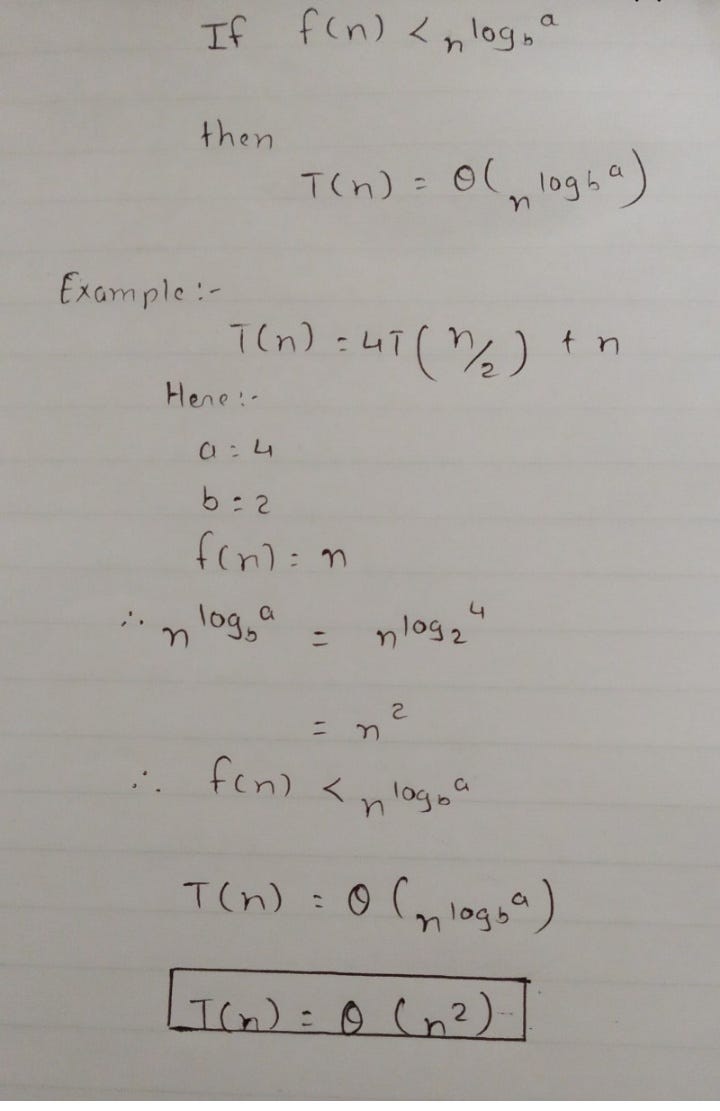 If f(n) < n^log_b^a
then
T(n) = θ(n^log_b^a)
Example :-
T(n) = 4T(n/2) + n
Here :-
a = 4
b = 2
f(n) = n
∴ n^log_b^a = n^log_2^4
= n^2
∴ f(n) < n^log_b^a
T(n) = θ(n^log_b^a)
T(n) = θ(n^2)